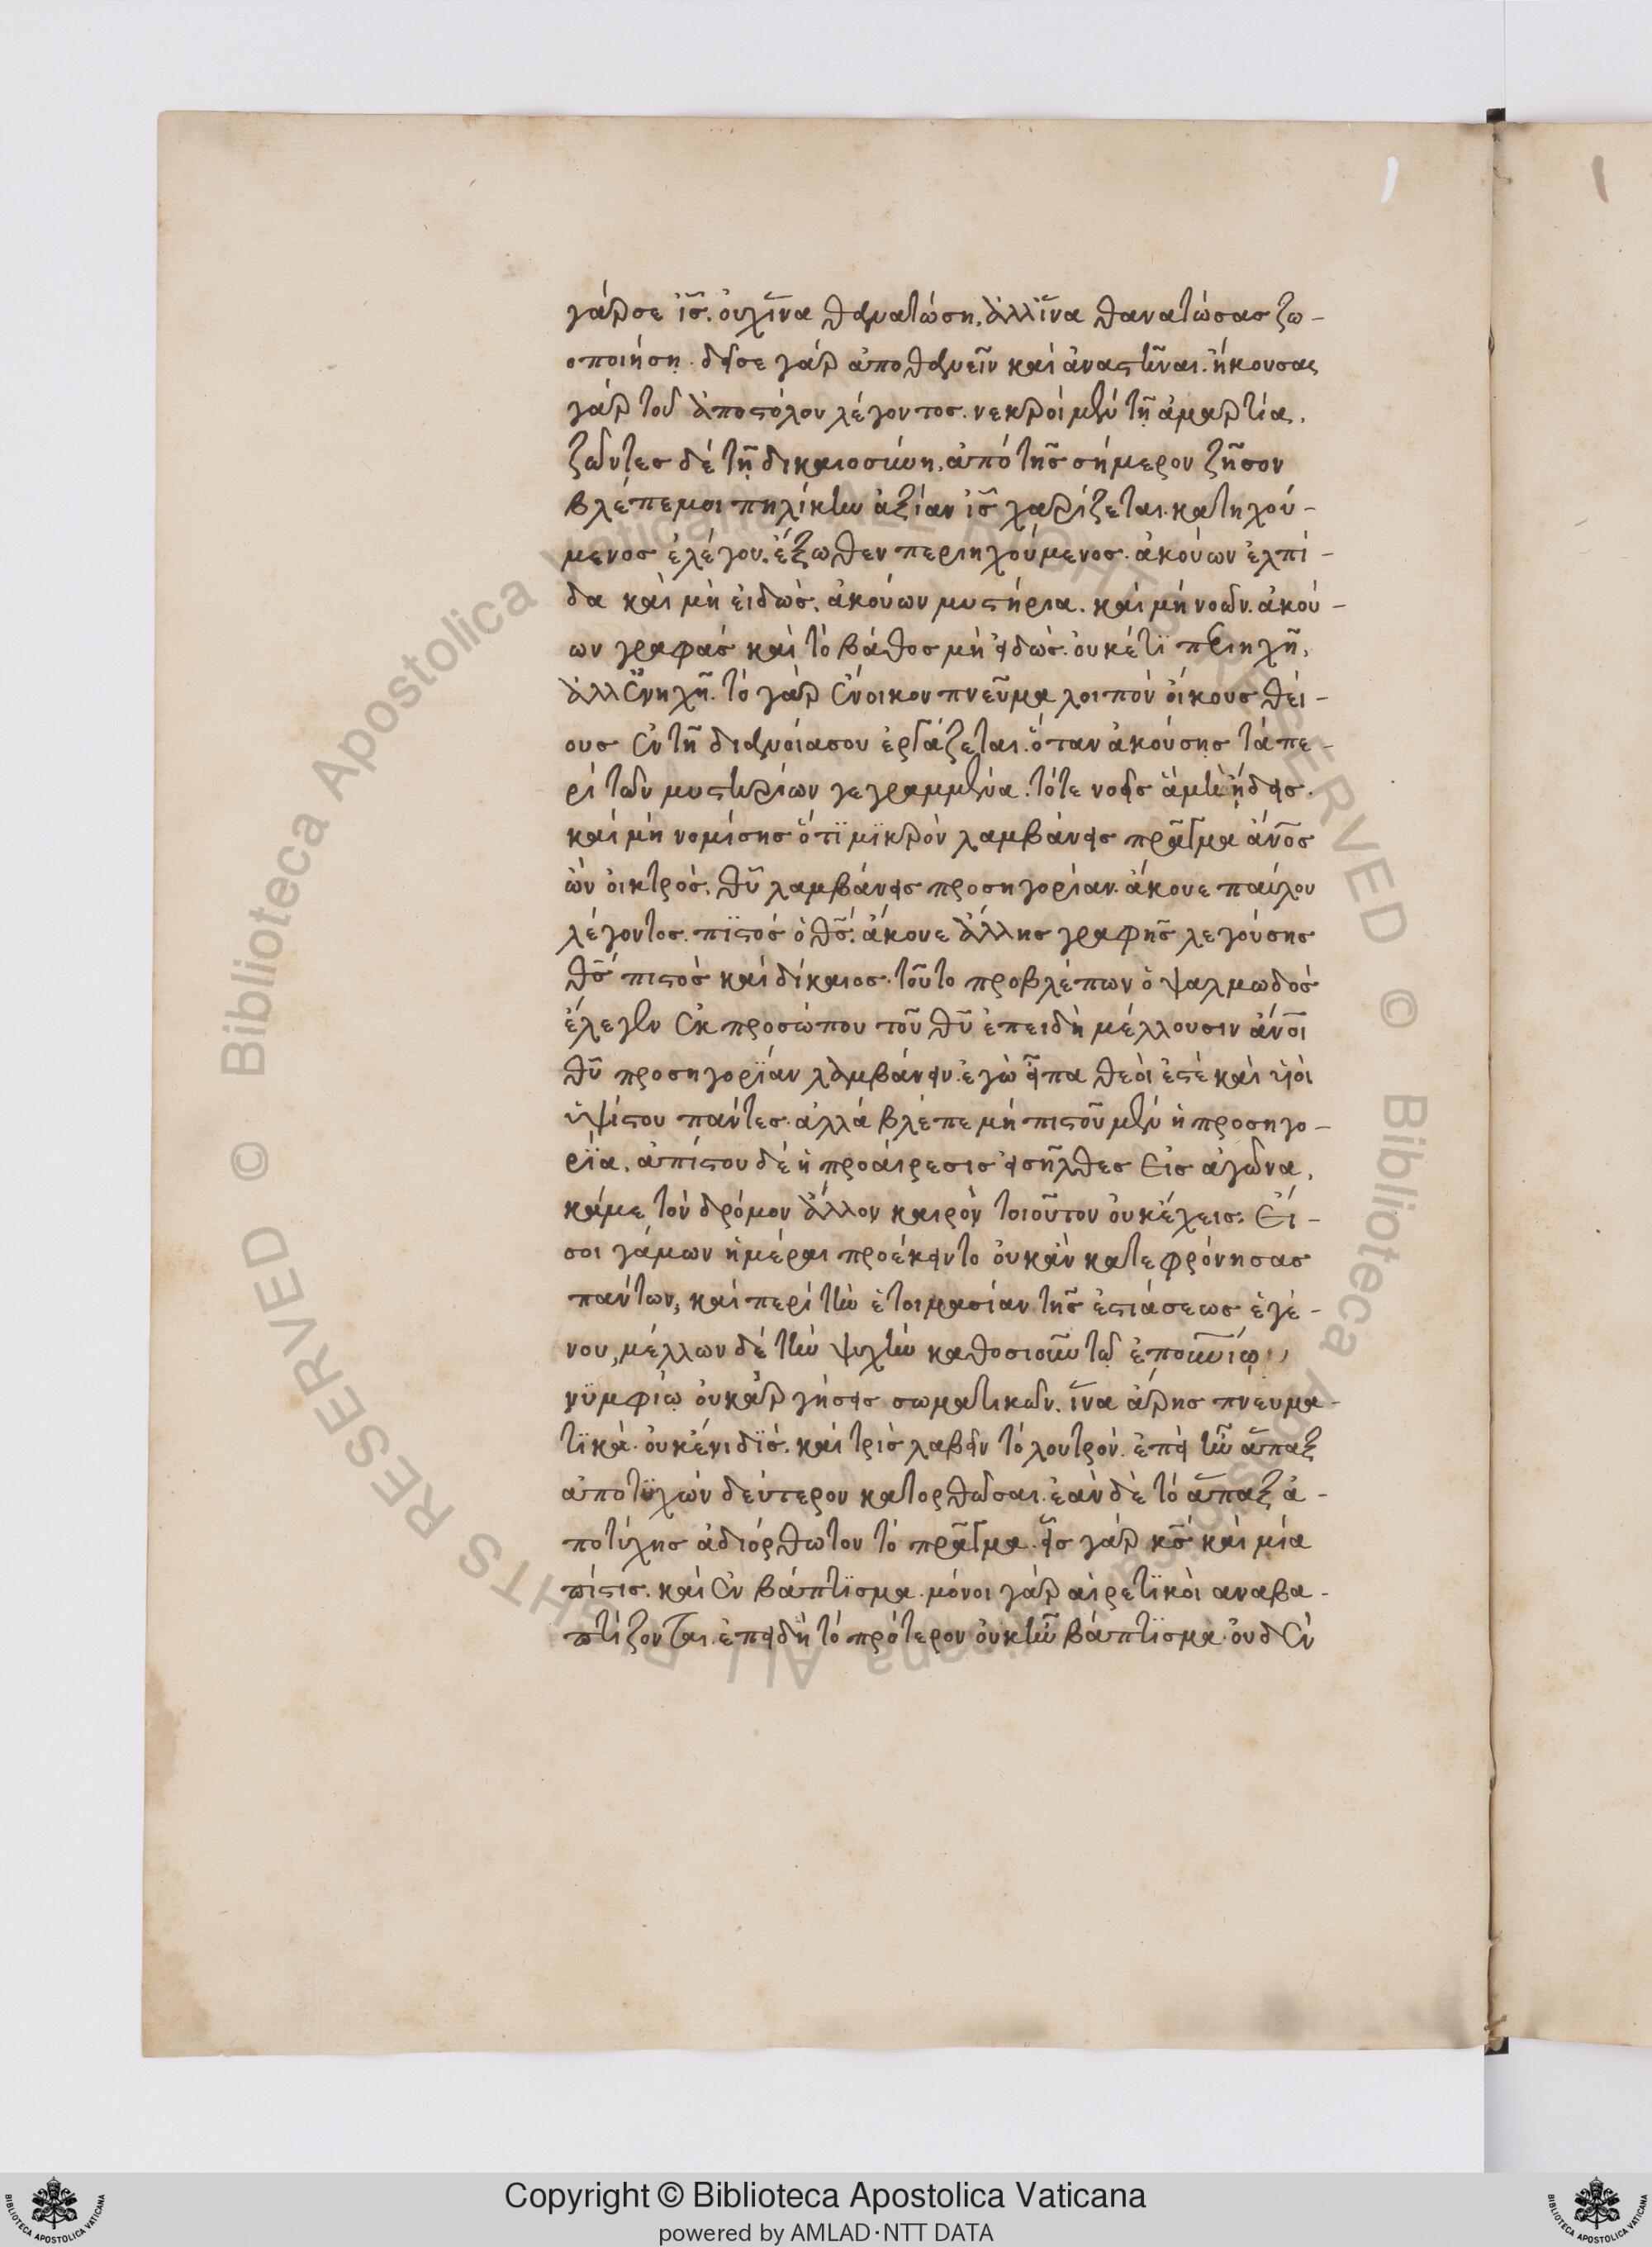 γάρ σε ἰς̅. οὐχ ἵνα θανατώση, ἀλλ ἵνα θανατώσας ζω-
οποιήση. δεῖ σε γάρ ἀποθανεῖν καὶ ἀναστῆναι. ἤκουσας
γάρ τοῦ ἀποστόλου λέγοντος. νεκροί μὲν τῇ ἁμαρτία,
ζῶντες δέ τῇ δικαιοσύνη, ἀπό τῆς σήμερον ζῆσον
βλέπε μοι πηλίκην ἀξίαν ἰς̅ χαρίζεται. κατηχού-
μενος ἐλέγου. ἔξωθεν περιηχούμενος. ἀκούων ἐλπί-
δα καὶ μὴ εἰδώς. ἀκούων μυστήρια. καὶ μή νοῶν. ἀκού-
ων γραφάς καὶ τὸ βάθος μὴ εἰδώς. οὐκέτϊ περιηχῆ,
ἀλλ ἐνηχῆ. τὸ γάρ ἔνοικον πνεῦμα λοιπόν οἴκους θεί-
ους ἐν τῆ διανοία σου ἐργάζεται. ὅταν ἀκούσης τά πε-
ρί τῶν μυστηρίων γεγραμμένα. τότε νοεῖς ἅ μὴ ᾔδεις.
καί μή νομίσης ὅτϊ μϊκρόν λαμβάνεις πρᾶγμα ἄνος̅
ὤν οἰκτρός. θυ̅ λαμβάνεις προσηγορίαν. ἄκουε παύλου
λέγοντος. πϊστός ὁ θς̅. ἄκουε ἄλλης γραφῆς λεγούσης
θς̅ πιστός καί δίκαιος. τοῦτο προβλέπων ὁ ψαλμωδός
ἔλεγεν ἐκ προσώπου τοῦ θυ̅ ἐπειδὴ μέλλουσιν ἄνοι̅
θυ̅ προσηγορϊάν λαμβάνειν. ἐγὼ εἶπα θεοί ἐστέ καὶ υἱοί
ὑψίστου πάντες. ἀλλά βλέπε μή πιστοῦ μέν ἡ προσηγο-
ρϊα, ἀπίστου δέ ἡ προαίρεσις εἰσῆλθες εἰς ἀγῶνα,
κάμε τόν δρόμον ἄλλον καιρὸν τοιοῦτον οὐκ ἔχεις. Εἴ-
σοι γάμων ἡμέραι προέκειντο οὐκ ἄν κατεφρόνησας
πάντων, καί περί τὴν ἑτοιμασίαν τῆς ἑστιάσεως ἐγέ-
νου, μέλλων δέ τὴν ψυχήν καθοσιοῦν τῷ ἐπουνιῳ̅
νϋμφίω οὐκ ἀργήσεις σωματικῶν. ἵνα ἄρης πνευμα-
τϊκά. οὐκ ἔνι δϊς. καί τρίς λαβεῖν τὸ λουτρόν. ἐπεὶ ἦν ἅπαξ
ἀποτϋχών δεύτερον κατορθῶσαι. ἐάν δὲ τό ἅπαξ ἀ-
ποτύχης ἀδιόρθωτον τὸ πρᾶγμα. εἷς γάρ κς̅ καὶ μία
πίστις. καί ἕν βάπτϊσμα. μόνοι γάρ αἱρετϊκοὶ αναβα-
πτίζονται. ἐπειδή τὸ πρότερον οὐκ ἦν βάπτϊσμα. οὐδέν
1
1
© Biblioteca Apostolica Vaticana ALL RIGHTS RESERVED © Biblioteca Apostolica Vaticana ALL RIGHTS RESERVED
Copyright © Biblioteca Apostolica Vaticana
powered by AMLAD·NTT DATA
BIBLIOTECA APOSTOLICA VATICANA
BIBLIOTECA APOSTOLICA VATICANA